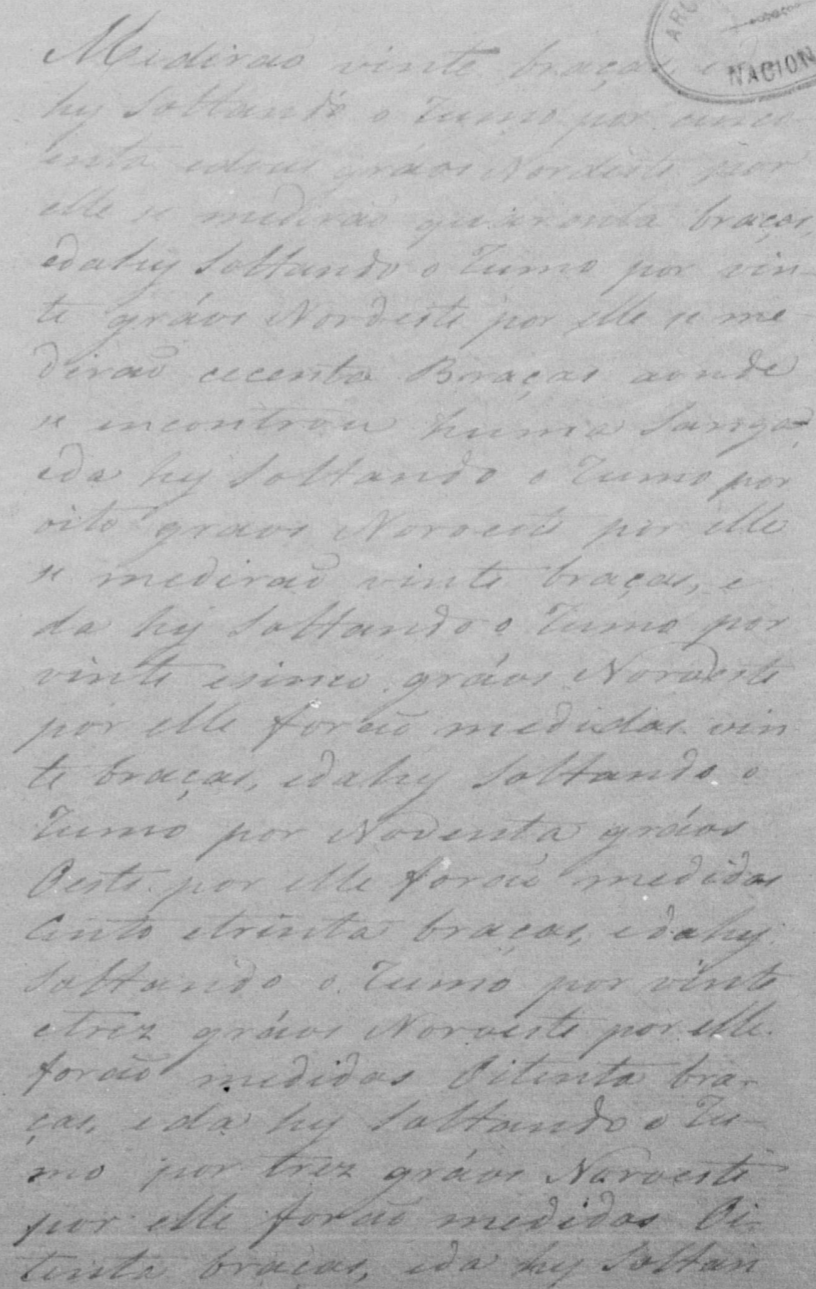 Medirao vinte braças, e
hy soltando o Rumo por cinco
enta edous gráos Nordeste por
elle se medirao quaronta braças,
edahy soltando o Rumo por vin-
te gráos Nordeste por elle se me-
diraõ cecenta Braças aonde
se incontrou huma Sanga,
eda hy soltando o Rumo por
oito graos Noroeste por elle
se mediraõ vinte braças, e
da hy soltando o Rumo por
vinte esinco gráos Noroeste
por elle foraõ medidas vin
te braças, edahy soltando o
Rumo por Noventa gráos
Oeste por elle foraõ medidas
Cento etrinta braças, edahy
soltando o Rumo por vinte
etrez gráos Noroeste por elle
foraõ medidas Oitenta bra-
ças, eda hy soltando o Ru-
mo por trez gráos Noroeste
por elle foraõ medidas Oi-
tenta braças, eda hy soltan
NACION